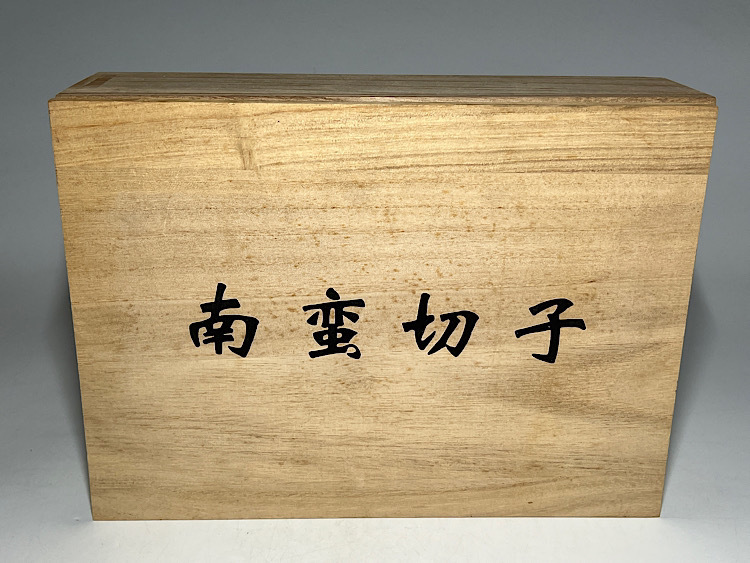 南蛮切子